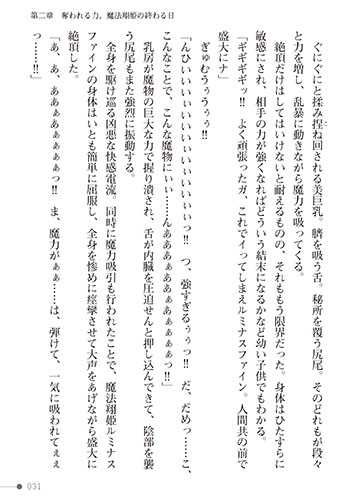 第二章　奪われる力。魔法翔姫の終わる日
ぐにぐにと揉み捏ね回される美巨乳。臍を吸う舌。秘所を覆う尻尾。そのどれもが段々
と力を増し、乱暴に動きながら魔力を吸ってくる。
絶頂だけはしてはいけないと耐えるものの、それももう限界だった。身体はひたすらに
敏感にされ、相手の力が強くなればどういう結末になるかなど幼い子供でもわかる。
「ギギギギッ!!　よく頑張ったガ、これでイってしまえルミナスファイン。人間共の前で
盛大にナ」
ぎゅむぅぅぅぅ!!
「んひぃいいぃぃぃぃぃぃぃっ!!　つ、強すぎるぅぅっ!!　だ、だめっ……こ、
こんなことで、こんな魔物にぃぃ……んああぁああぁあぁぁぁっ!!」
乳房が魔物の巨大な力で握り潰され、舌が内臓を圧迫せんと押し込んできて、陰部を襲
う尻尾もまた強烈に振動する。
全身を駆け巡る凶悪な快感電流。同時に魔力吸引も行われたことで、魔法翔姫ルミナス
ファインの身体はいとも簡単に屈服し、全身を惨めに痙攣させて大声をあげながら盛大に
絶頂した。
「あ、あ、ああぁあぁぁぁぁっ!!　ま、魔力がぁぁ……は、弾けて、一気に吸われてぇぇ
031